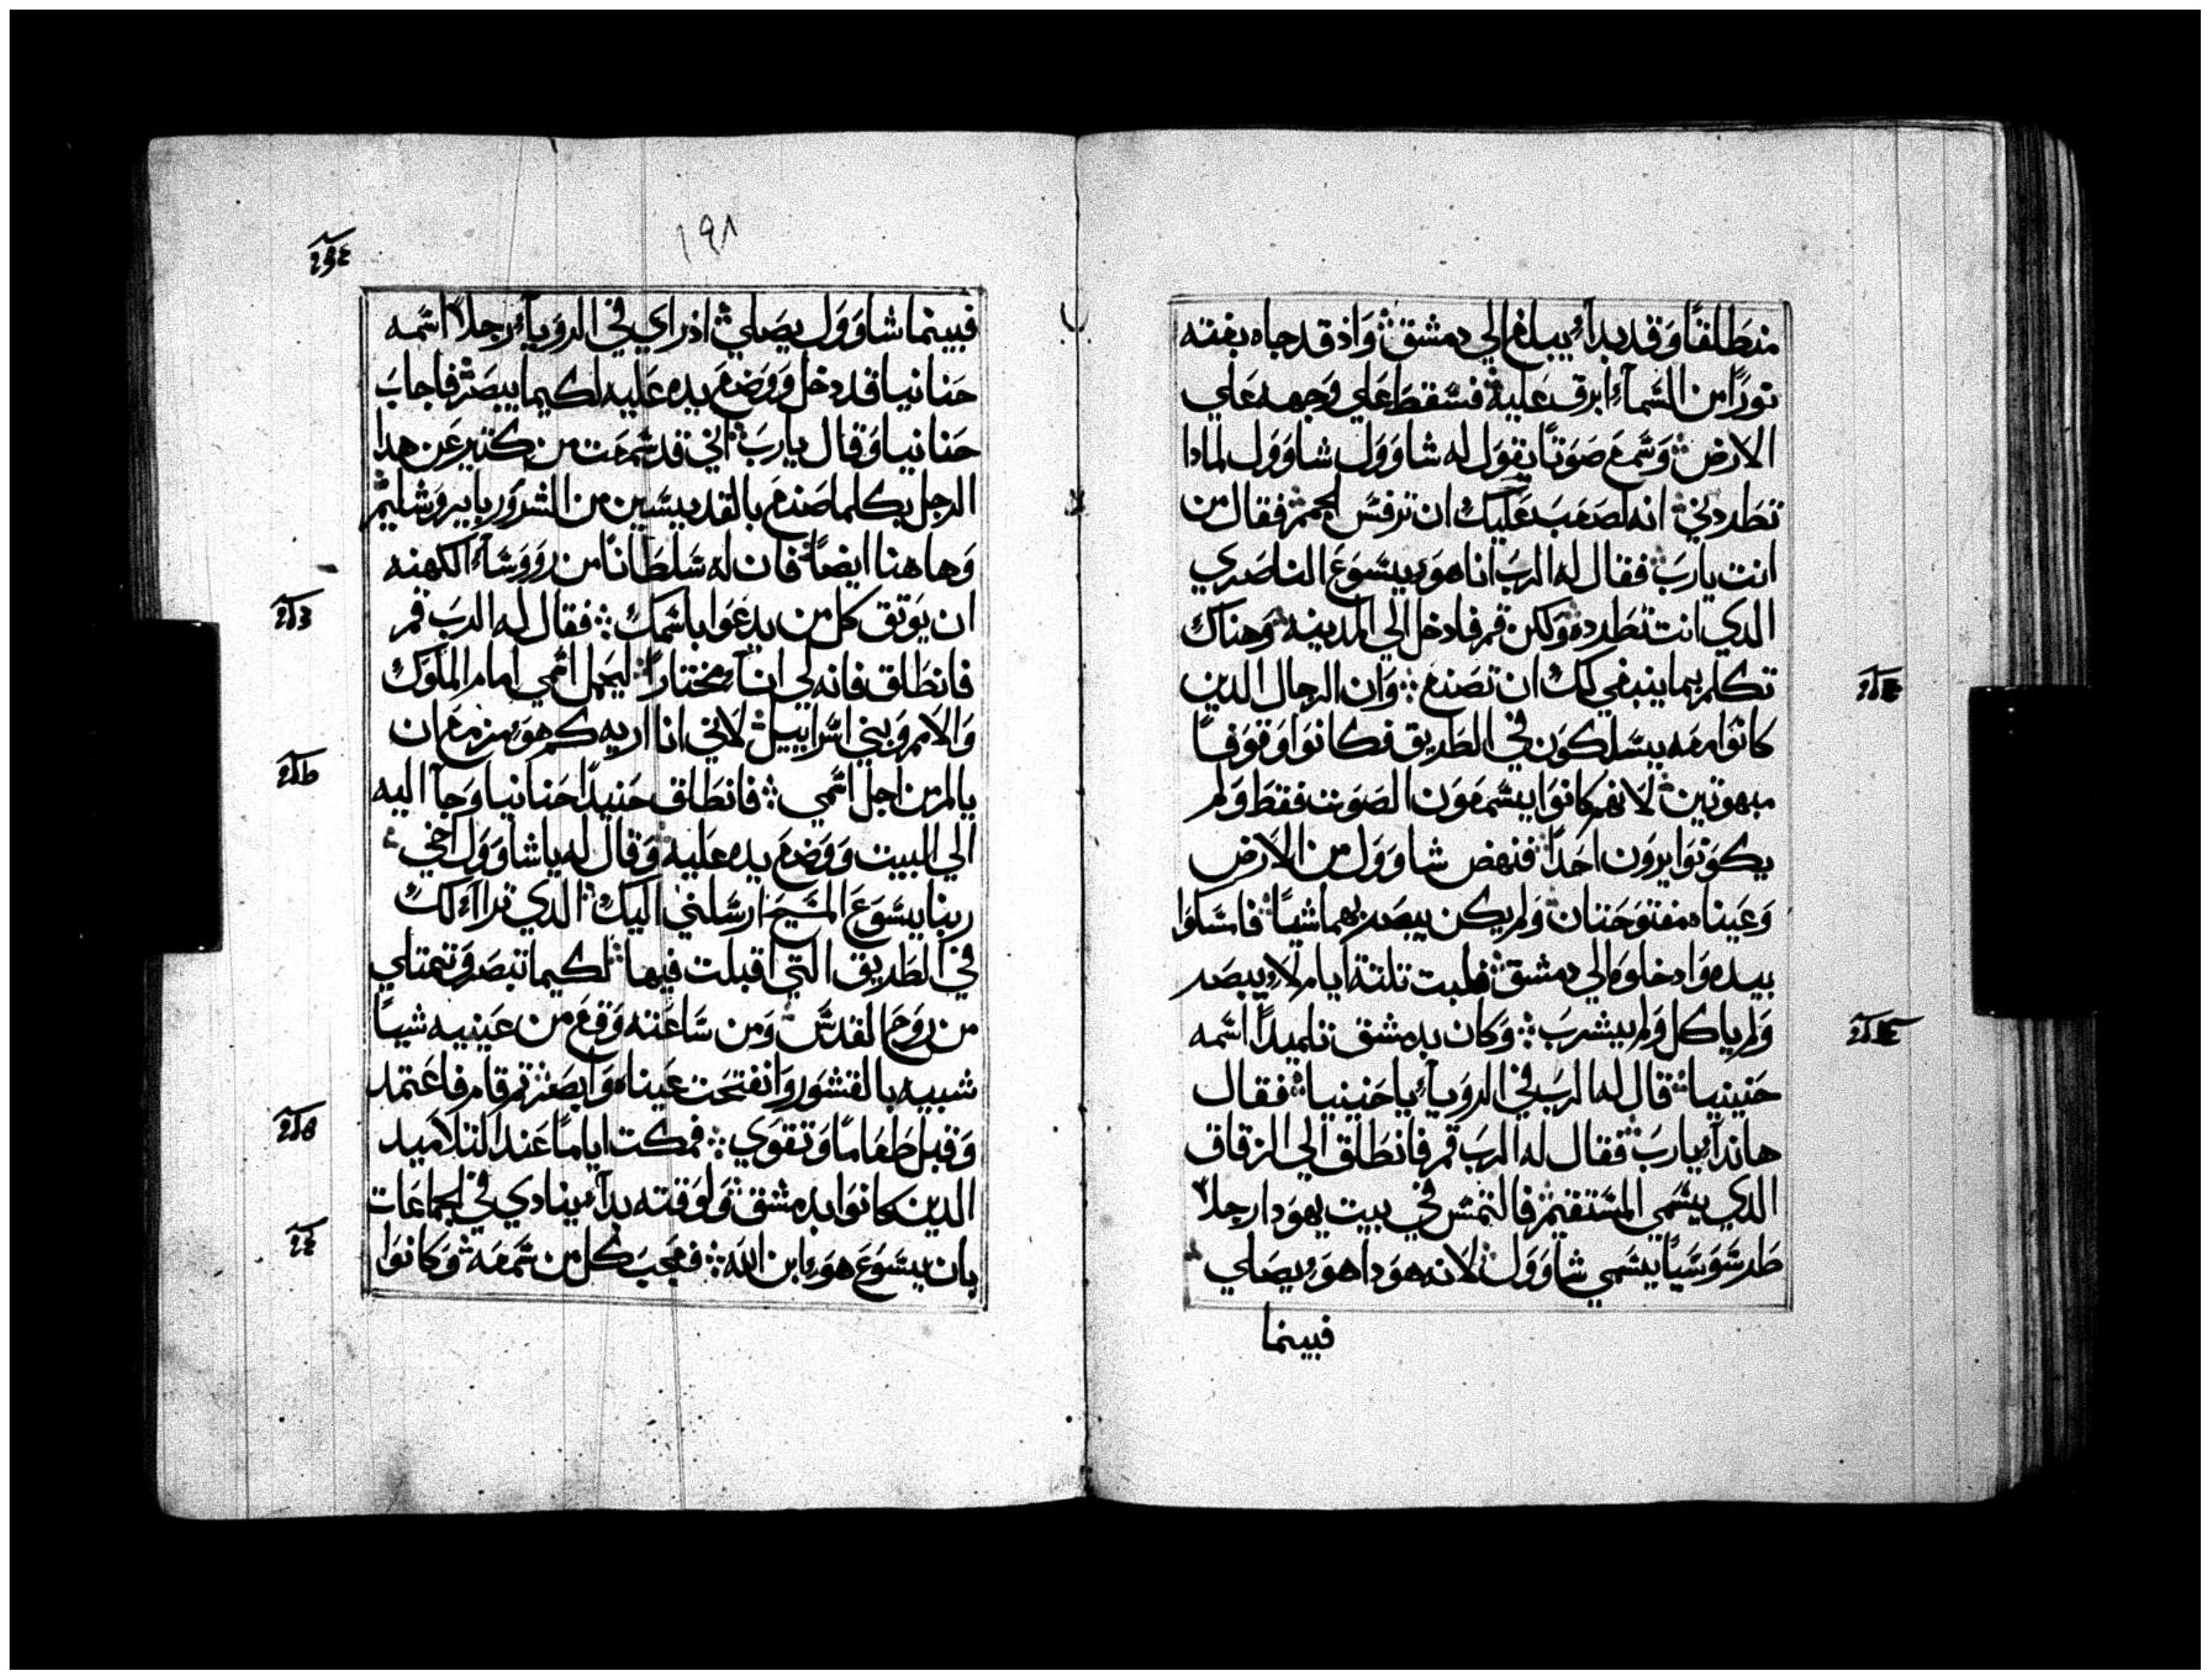 منطلقًا وقد بدأ يبلغ الي دمشق وَاذ قد جاه بغته
نورًا من السمآء ابرق عليه فسقط علي وجهه علي
الارض وسمع صوتًا يقول له شاوول شاوول لمادا
تطردني انه لصعب عليك ان ترفس لحجر فقال من
انت يارب فقال له الرب انا هو يسوع الناصري
الدي انت تطرده ولكن قم فادخل الي المدينه وهناك
تكلم بما ينبغي لك ان تصنع وان الرجال الدين
كانوا معه يسلكون في الطريق فكانوا وقوفًا
مبهوتين لانهم كانوا يسمعون الصوت فقط ولم
يكونوا يرون احدًا فنهض شاوول من الارض
وعيناه مفتوحتان ولم يكن يبصر بهما شيا فامسكوا
بيده وادخلوه الي دمشق فلبت تلتة ايام لا يبصر
ولم ياكل ولم يشرب وكان بدمشق تلميدًا اسمه
حنينيا قال له الرب في الرويآء ياحنينيا فقال
هاندآء يارب فقال له الرب قم فانطلق الي الزقاق
الدي يسمي المستقيم فالتمس في بيت يهودا رجلاً
طرسوسيًا يسمي شاوول لانه هودا هو يصلي
فبينما
١٩٨
فبينما شاوول يصلي اذ راي في الرويآء رجلاً اسمه
حنانيا قد دخل ووضع يده عليه لكيما يبصر فاجاب
حنانيا وقال يارب اني قد سمعت من كتير عن هدا
الرجل بكلما صنع بالقديسين من الشرور بايروشليم
وهاهنا ايضًا فان له سلطانًا من رووسآء الكهنه
ان يوتق كل من يدعوا باسمك فقال له الرب قم
فانطلق فانه لي انآء مختارًا ليحمل اسمي امام الملوك
والامم وبني اسراييل لاني انا اريه كم هو مزمع ان
يالم من اجل اسمي فانطلق حنيدًا حنانيا وجآ اليه
الي البيت ووضع يده عليه وقال له ياشاوول اخي
ربنا يسوع المسيح ارسلني اليك الدي تراآء لك
في الطريق التي اقبلت فيها لكيما تبصر وتمتلي
من روح القدس ومن ساعته وقع من عينيه شيا
شبيه بالقشور وانفتحت عيناه وابصر تم قام فاعتمد
وقبل طعامًا وتقوي فمكت ايامًا عند التلاميد
الدين كانوا بدمشق ولوقته بدآء ينادي في الجماعات
بان يسوع هو ابن الله فعجب كل من سمعه وكانوا